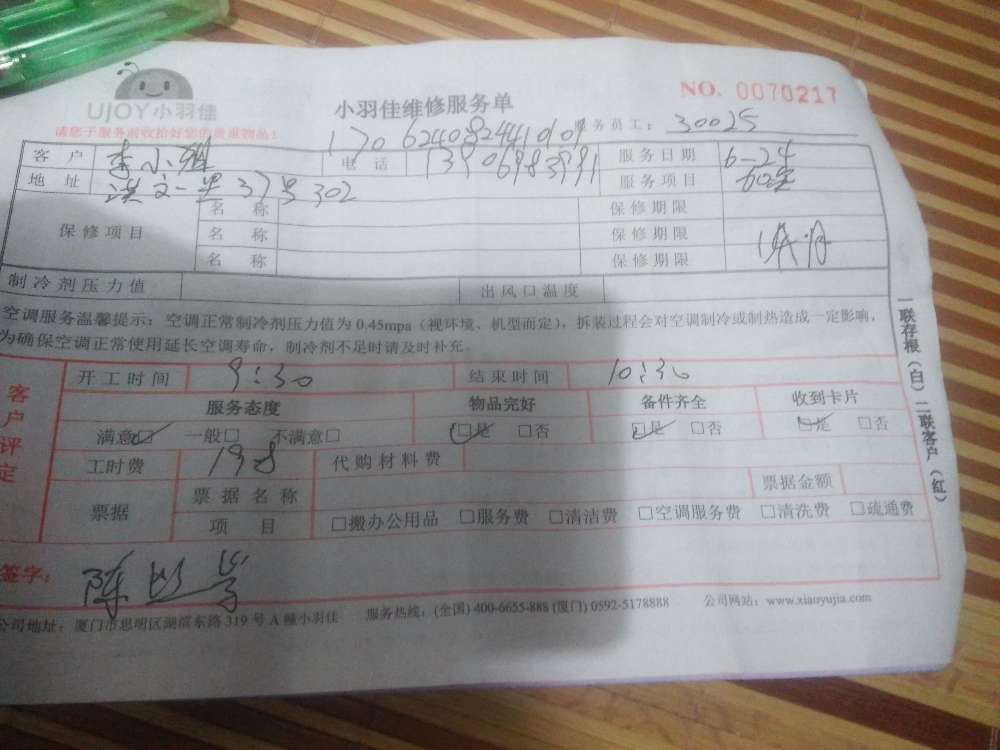 UJOY小羽佳
小羽佳维修服务单
NO. 0070217
请您于服务前收拾好您的贵重物品!
服务员工: 30025
客户 李小姐 电话 13906983991 服务日期 6-24
地址 洪文一里37号302 服务项目
保修项目
名称 保修期限
名称 保修期限
名称 保修期限
制冷剂压力值 出风口温度
空调服务温馨提示: 空调正常制冷剂压力值为 0.45mpa (视环境、机型而定), 拆装过程会对空调制冷或制热造成一定影响,
为确保空调正常使用延长空调寿命, 制冷剂不足时请及时补充。
客户评定
开工时间 9:30 结束时间 10:30
服务态度 物品完好 备件齐全 收到卡片
满意☑ 一般□ 不满意□ ☑是 □否 ☑是 □否 ☑是 □否
工时费 198 代购材料费
票据 票据名称 票据金额
项目 □搬办公用品 □服务费 □清洁费 □空调服务费 □清洗费 □疏通费
签字:
公司地址: 厦门市思明区湖滨东路 319 号 A 幢小羽佳 服务热线: (全国) 400-6655-888 (厦门) 0592-5178888 公司网站: www.xiaoyujia.com
一联存根(白)二联客户(红)